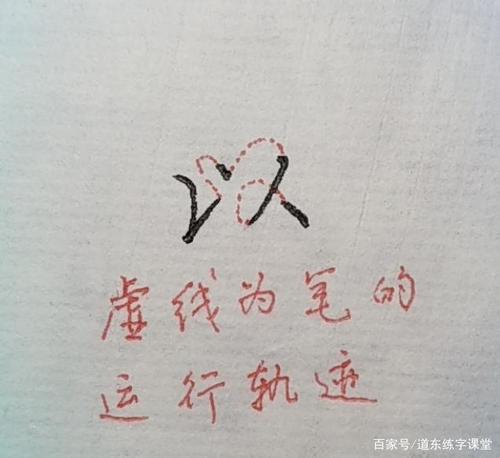 以
虚线为笔的
运行轨迹
百家号/道东练字课堂